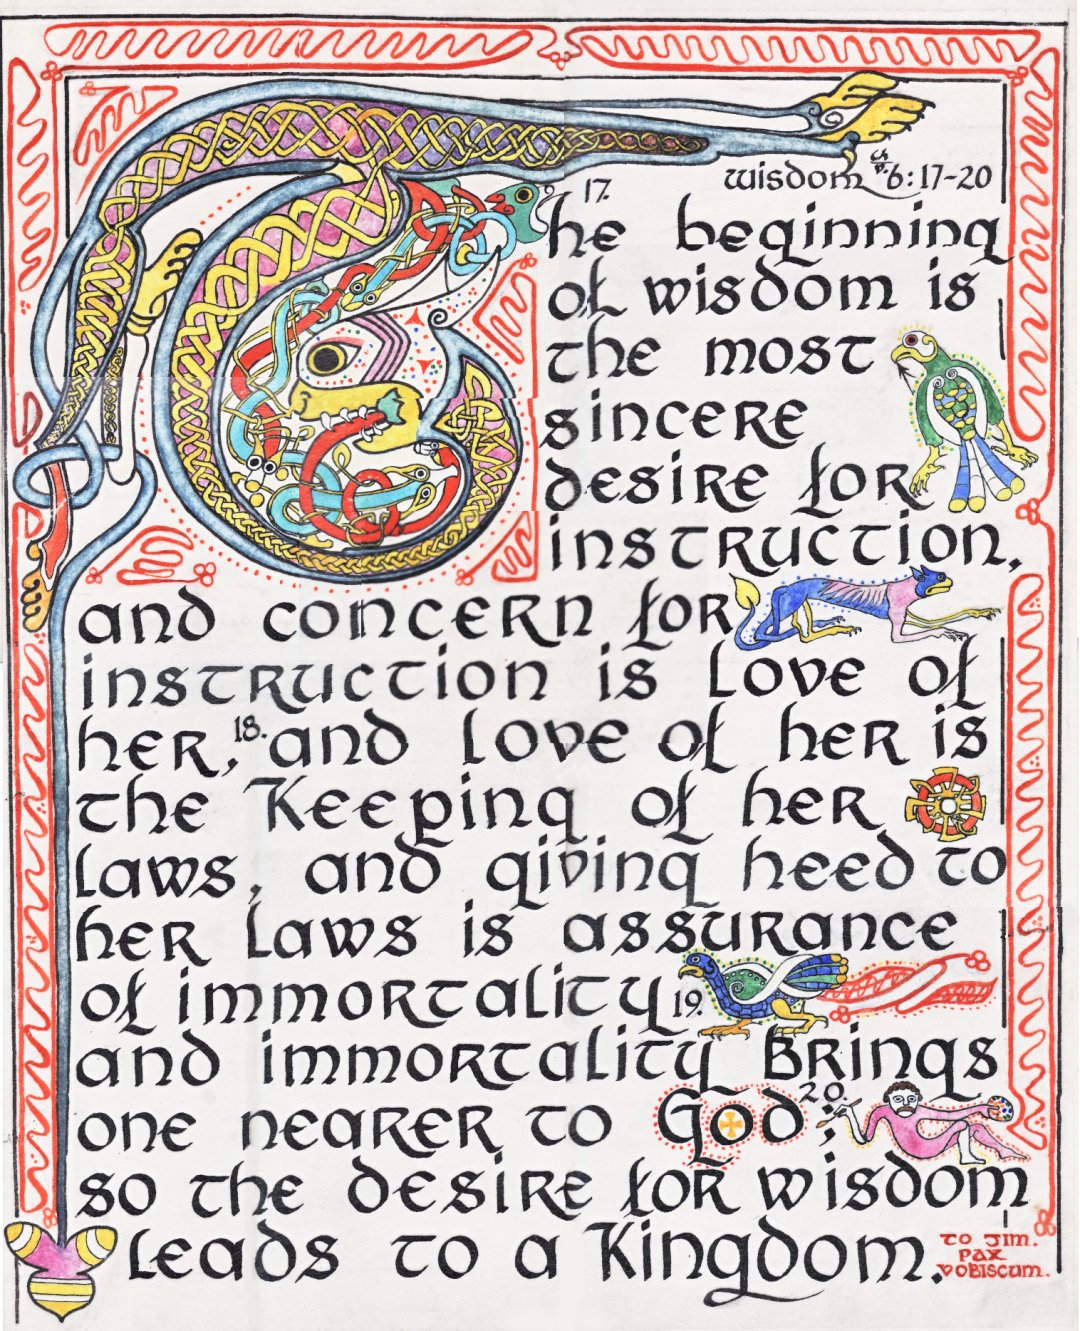 wisdom ch. 6:17-20
17.
The beginning
of wisdom is
the most
sincere
desire for
instruction,
and concern for
instruction is Love of
her, 18. and love of her is
the Keeping of her
Laws, and giving heed to
her Laws is assurance
of immortality 19.
and immortality Brings
one nearer to God; 20.
so the desire for wisdom
Leads to a Kingdom.
to Jim.
Pax
vobiscum.